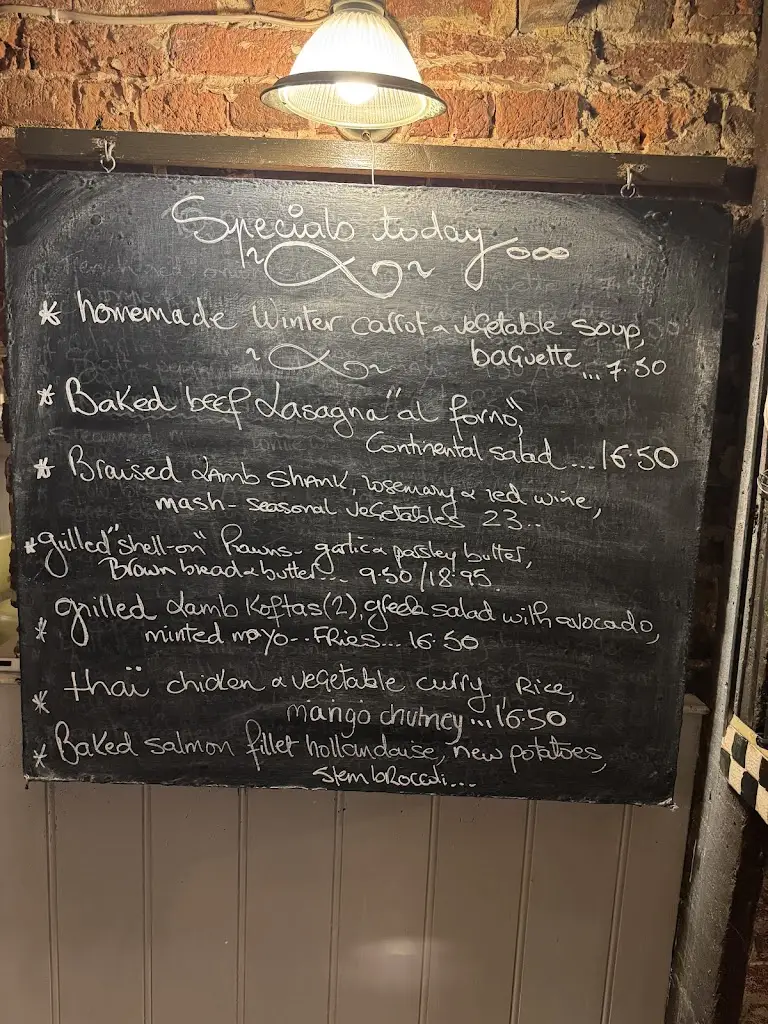 Specials today
* homemade Winter carrot & vegetable soup,
baguette...7.50
* Baked beef Lasagna "al forno",
Continental salad...16.50
* Braised Lamb SHANK, rosemary & red wine,
mash - seasonal vegetables 23..
* grilled "shell-on" Prawns - garlic & parsley butter,
Brown bread & butter.... 9.50/18.95
* grilled Lamb Koftas (2), greek salad with avocado,
minted mayo - - FRies... 16.50
* thaï chicken & vegetable curry, Rice,
mango chutney...16.50
* Baked salmon fillet hollandaise, new potatoes,
Stem bRoccoli...